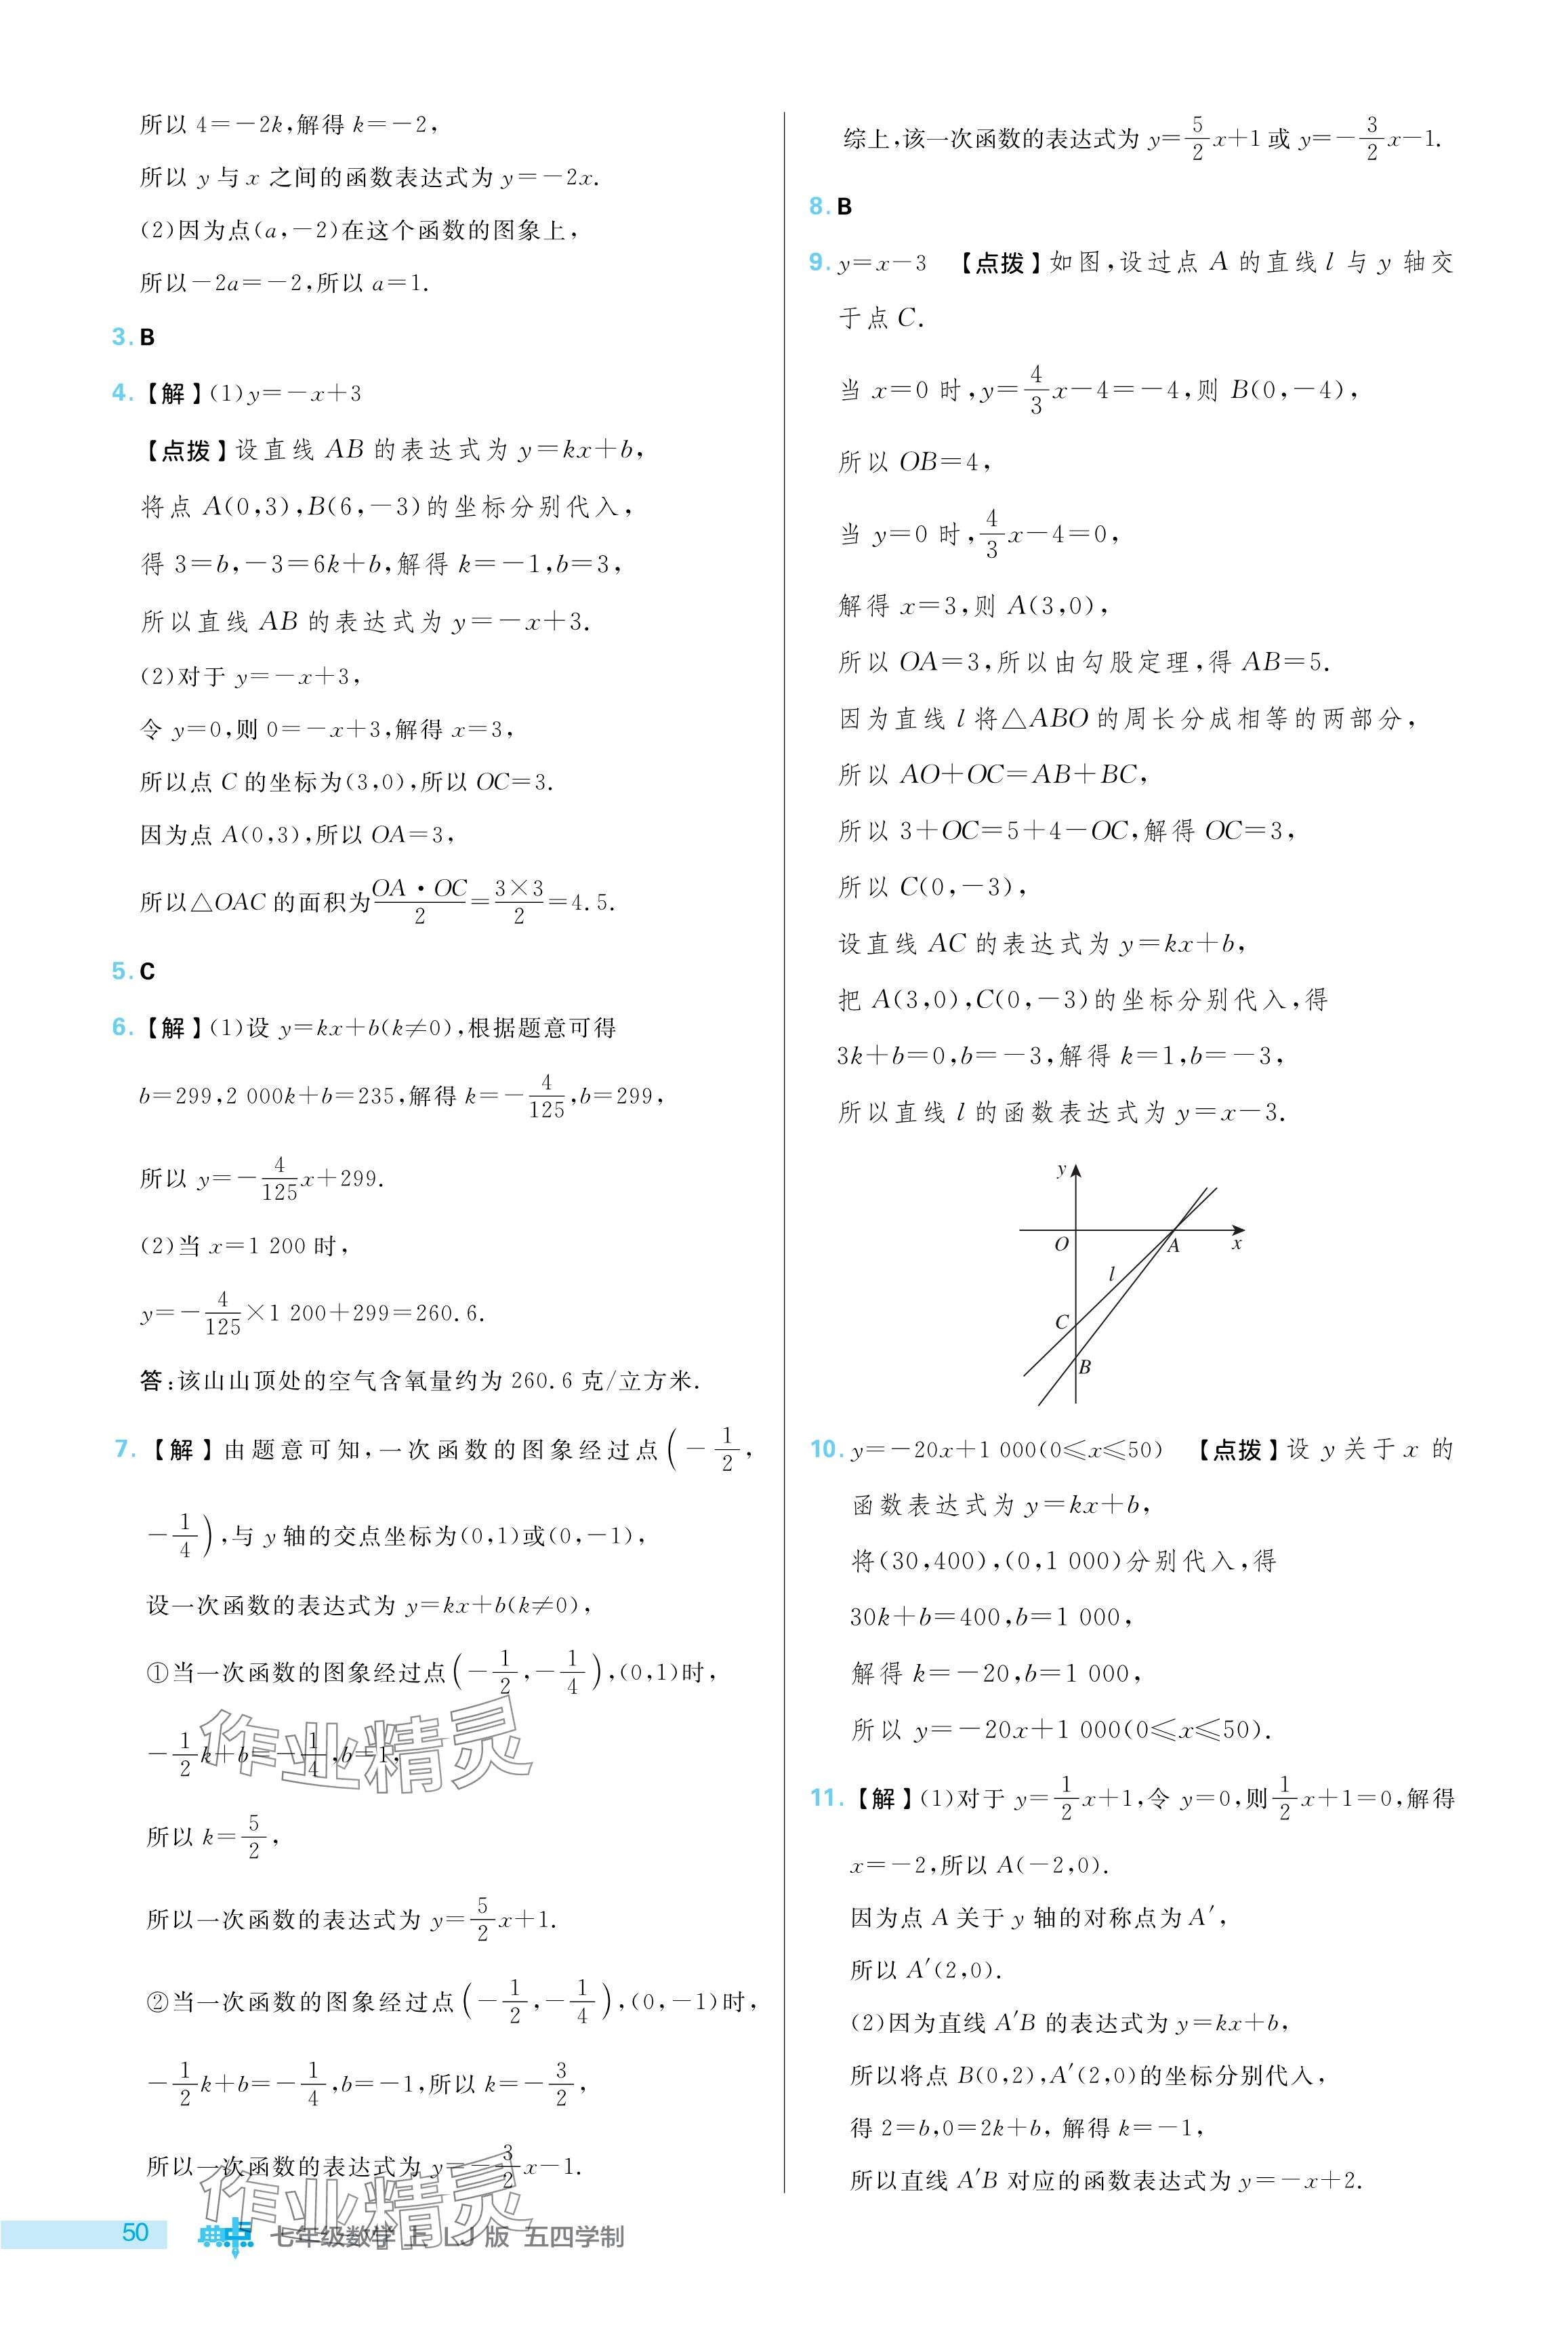 所以 4=-2k,解得 k=-2,
所以 y 与 x 之间的函数表达式为 y=-2x.
(2)因为点(a,-2)在这个函数的图象上,
所以-2a=-2,所以 a=1.
3. B
4.【解】(1)y=-x+3
【点拨】设直线 AB 的表达式为 y=kx+b,
将点 A(0,3),B(6,-3)的坐标分别代入,
得 3=b,-3=6k+b,解得 k=-1,b=3,
所以直线 AB 的表达式为 y=-x+3.
(2)对于 y=-x+3,
令 y=0,则 0=-x+3,解得 x=3,
所以点 C 的坐标为(3,0),所以 OC=3.
因为点 A(0,3),所以 OA=3,
所以△OAC 的面积为 OA·OC/2 = 3×3/2 =4.5.
5. C
6.【解】(1)设 y=kx+b(k≠0),根据题意可得
b=299,2 000k+b=235,解得 k=-4/125,b=299,
所以 y=-4/125 x+299.
(2)当 x=1 200 时,
y=-4/125×1 200+299=260.6.
答:该山山顶处的空气含氧量约为 260.6 克/立方米.
7.【解】由题意可知,一次函数的图象经过点(-1/2,
-1/4),与 y 轴的交点坐标为(0,1)或(0,-1),
设一次函数的表达式为 y=kx+b(k≠0),
①当一次函数的图象经过点(-1/2,-1/4),(0,1)时,
-1/2 k+b=-1/4,b=1,
所以 k=5/2,
所以一次函数的表达式为 y=5/2 x+1.
②当一次函数的图象经过点(-1/2,-1/4),(0,-1)时,
-1/2 k+b=-1/4,b=-1,所以 k=-3/2,
所以一次函数的表达式为 y=-3/2 x-1.
作业精灵
作业精灵
50 典中点 七年级数学 上 LJ 版 五四学制
综上,该一次函数的表达式为 y=5/2 x+1 或 y=-3/2 x-1.
8. B
9. y=x-3 【点拨】如图,设过点 A 的直线 l 与 y 轴交
于点 C.
当 x=0 时,y=4/3 x-4=-4,则 B(0,-4),
所以 OB=4,
当 y=0 时,4/3 x-4=0,
解得 x=3,则 A(3,0),
所以 OA=3,所以由勾股定理,得 AB=5.
因为直线 l 将△ABO 的周长分成相等的两部分,
所以 AO+OC=AB+BC,
所以 3+OC=5+4-OC,解得 OC=3,
所以 C(0,-3),
设直线 AC 的表达式为 y=kx+b,
把 A(3,0),C(0,-3)的坐标分别代入,得
3k+b=0,b=-3,解得 k=1,b=-3,
所以直线 l 的函数表达式为 y=x-3.
y
O A x
l
C
B
10. y=-20x+1 000(0≤x≤50) 【点拨】设 y 关于 x 的
函数表达式为 y=kx+b,
将(30,400),(0,1 000)分别代入,得
30k+b=400,b=1 000,
解得 k=-20,b=1 000,
所以 y=-20x+1 000(0≤x≤50).
11.【解】(1)对于 y=1/2 x+1,令 y=0,则1/2 x+1=0,解得
x=-2,所以 A(-2,0).
因为点 A 关于 y 轴的对称点为 A′,
所以 A′(2,0).
(2)因为直线 A′B 的表达式为 y=kx+b,
所以将点 B(0,2),A′(2,0)的坐标分别代入,
得 2=b,0=2k+b, 解得 k=-1,
所以直线 A′B 对应的函数表达式为 y=-x+2.